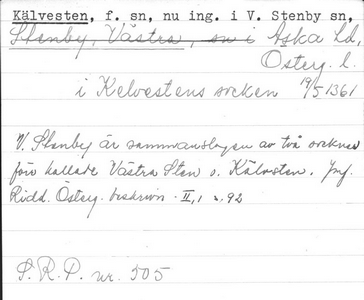 Kälvesten, f. sn, nu ing. i V. Stenby sn,
Stenby, Västra, sn i Aska hd,
Österg. l.
i Kelvestens socken 19/5 1361
V. Stenby är sammanslagen av två socknar
förr kallade Västra Sten o. Kälvesten. Jmf.
Ridd. Österg. beskrivn. II,1 s. 92
S. R. P. nr. 505